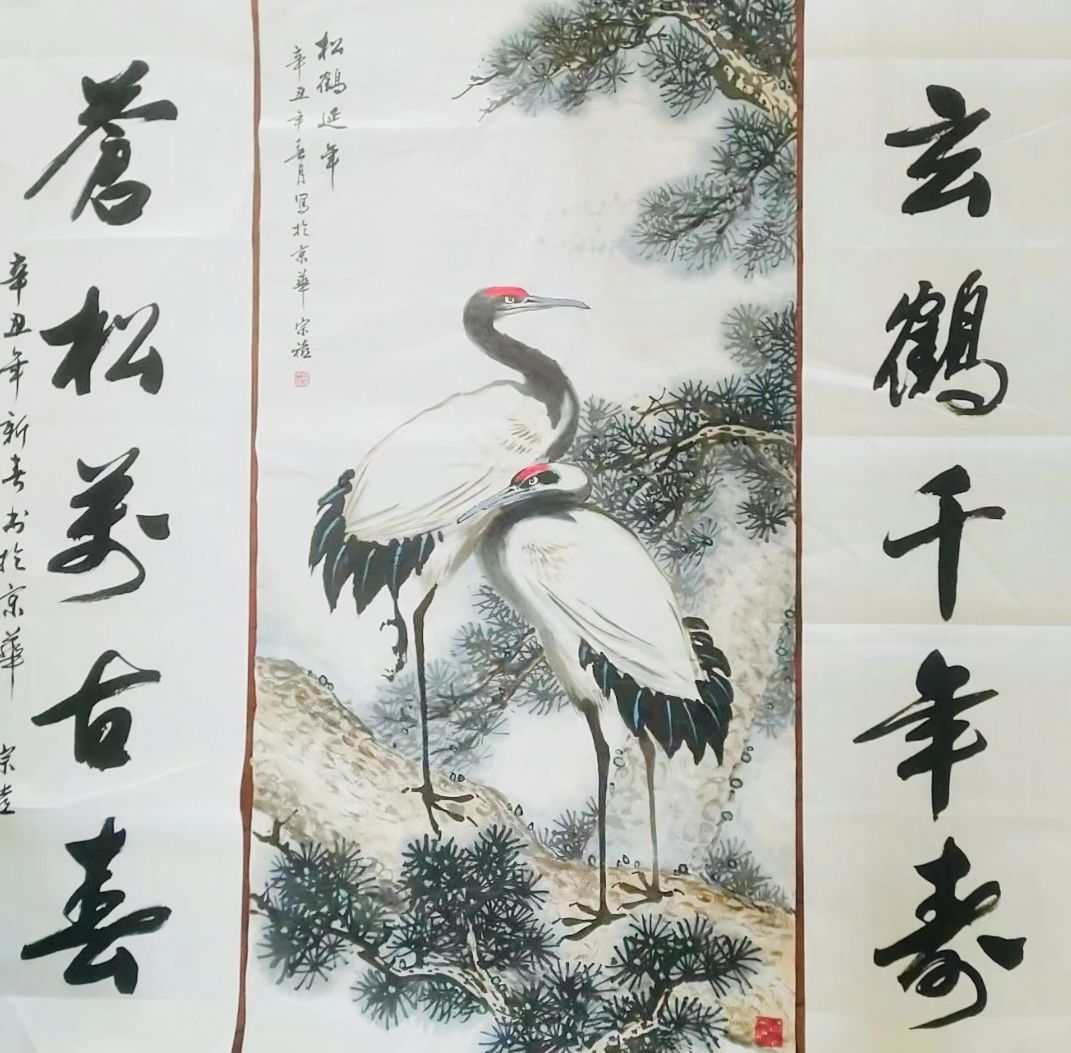 玄鶴千年寿
松鶴延年
辛丑年春月寫於京華 宗
蒼松萬古春
辛丑年新春書於京華 宗